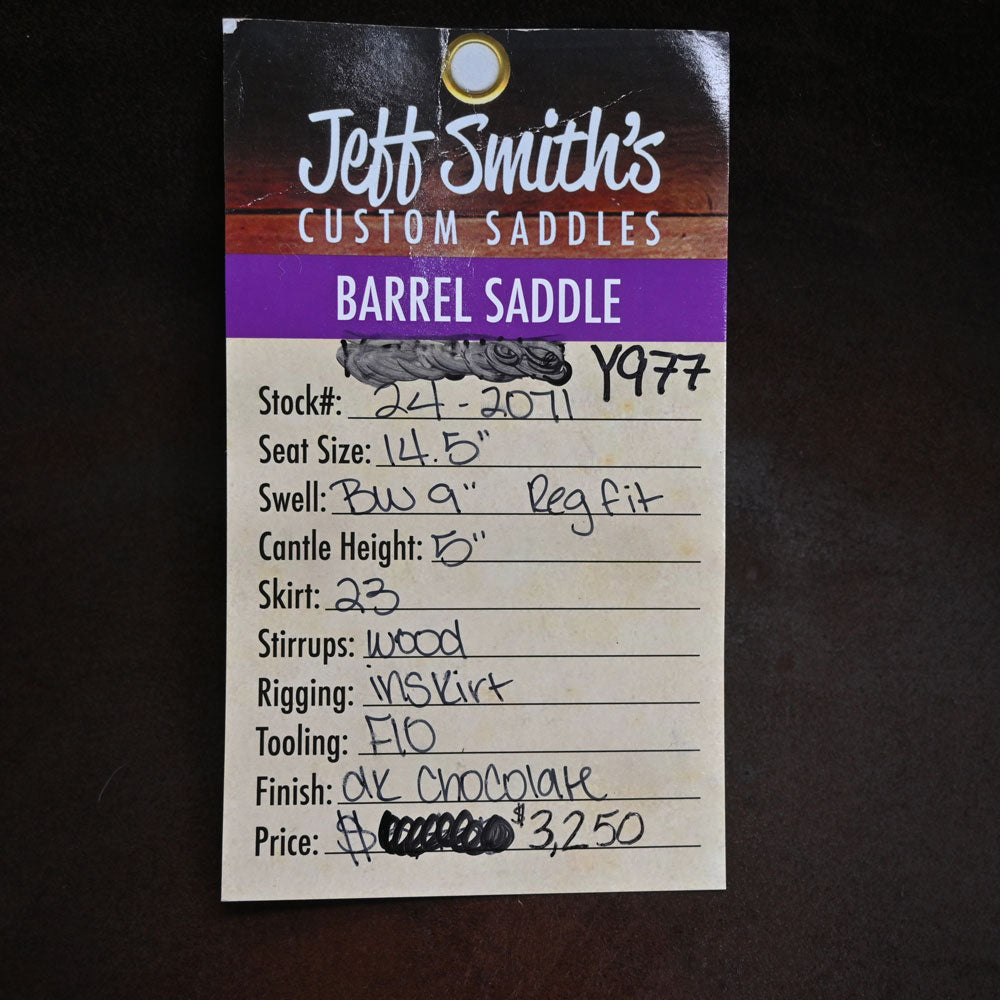 Jeff Smith's
CUSTOM SADDLES
BARREL SADDLE
Y977
Stock#: 24-2071
Seat Size: 14.5"
Swell: BW 9" Reg fit
Cantle Height: 5"
Skirt: 23
Stirrups: wood
Rigging: inskirt
Tooling: F10
Finish: dk chocolate
Price: $ $3,250